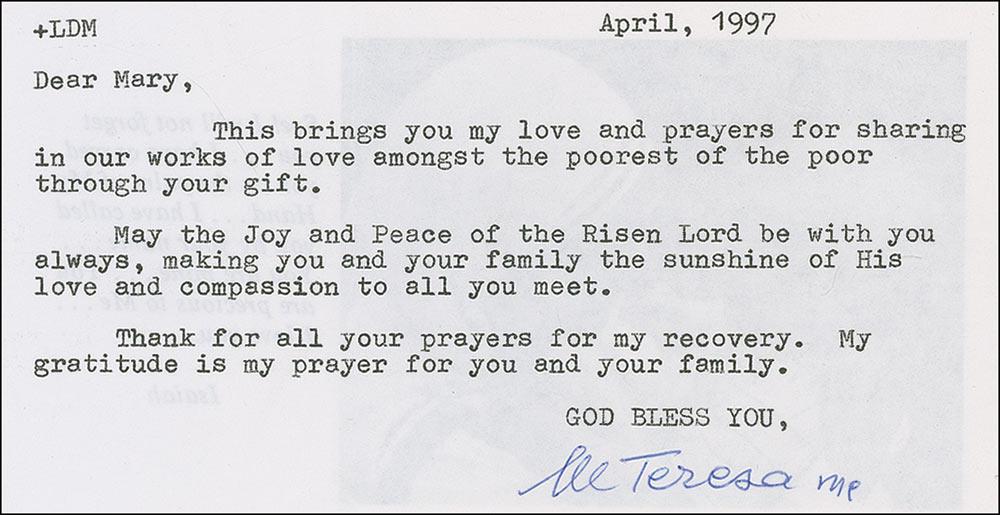 +LDM
April, 1997
Dear Mary,
This brings you my love and prayers for sharing
in our works of love amongst the poorest of the poor
through your gift.
May the Joy and Peace of the Risen Lord be with you
always, making you and your family the sunshine of His
love and compassion to all you meet.
Thank for all your prayers for my recovery. My
gratitude is my prayer for you and your family.
GOD BLESS YOU,
M Teresa mc